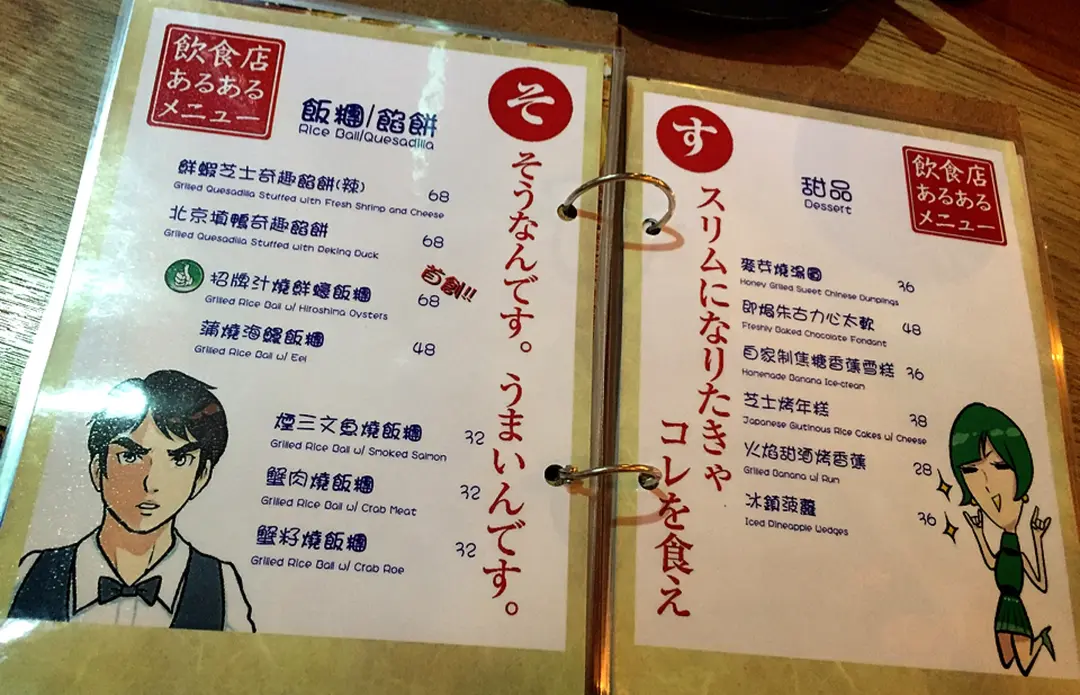 飲食店
あるある
メニュー
飯糰/餡餅
Rice Ball/Quesadilla
鮮蝦芝士奇趣餡餅(辣) 68
Grilled Quesadilla Stuffed with Fresh Shrimp and Cheese
北京填鴨奇趣餡餅 68
Grilled Quesadilla Stuffed with Peking Duck
招牌汁燒鮮蠔飯糰 68
首創!!
Grilled Rice Ball w/ Hiroshima Oysters
蒲燒海鰻飯糰 48
Grilled Rice Ball w/ Eel
煙三文魚燒飯糰 32
Grilled Rice Ball w/ Smoked Salmon
蟹肉燒飯糰 32
Grilled Rice Ball w/ Crab Meat
蟹籽燒飯糰 32
Grilled Rice Ball w/ Crab Roe
そ
そうなんです。うまいんです。
す
スリムになりたきゃ
コレを食え
甜品
Dessert
飲食店
あるある
メニュー
麥芽燒湯圓 36
Honey Grilled Sweet Chinese Dumplings
即焗朱古力心太軟 48
Freshly Baked Chocolate Fondant
自家制焦糖香蕉雪糕 36
Homemade Banana Ice-cream
芝士烤年糕 38
Japanese Gutinous Rice Cakes w/ Cheese
火焰甜酒烤香蕉 28
Grilled Banana w/ Run
冰鎮菠蘿 36
Iced Pineapple Wedges